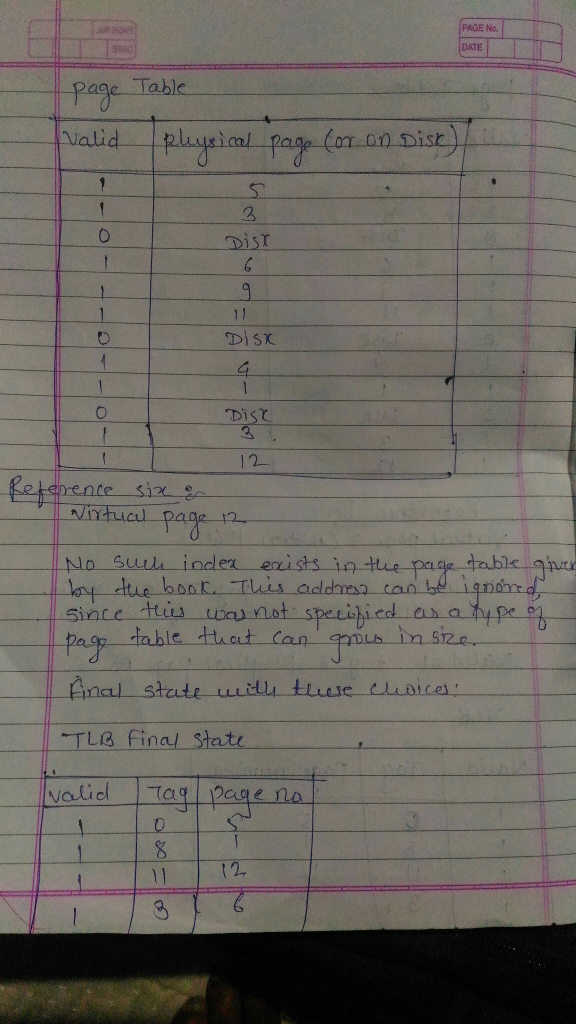 PAGE No.
DATE
page Table
Valid physical page (or on Disk)
1 5
1 3
0 Disk
1 6
1 9
1 11
0 Disk
1 4
1 1
0 Disk
1 3
1 12
Reference six :-
Virtual page 12
No such index exists in the page table given
by the book. This address can be ignored,
since this was not specified as a type of
page table that can grow in size.
Final state with these choices:
TLB Final state
Valid Tag page no
1 0 5
1 8 1
1 11 12
1 3 6